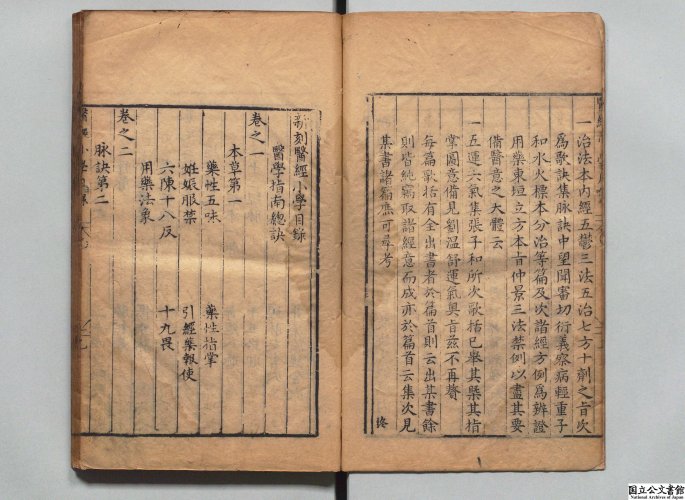 一治法本内經五鬱三法五治七方十劑之旨次
為歌訣集脉訣中望聞審切衍義察病輕重子
和水火標本分治等篇及次諸經方例為辨證
用藥東垣立方本旨仲景三法禁例以盡其要
備醫意之大體云
一五運六氣集張子和所次歌括已舉其槩其指
掌圖意備見劉温舒運氣奥旨兹不再贅
每篇歌括有全出書者於篇首則云出某書餘
則皆純竊取諸經意而成亦於篇首云集次見
某書諸篇應可尋考
終
新刻醫經小學目錄
醫學指南總訣
卷之一
本草第一
藥性五味 藥性指掌
妊娠服禁 引經藥報使
六陳十八反 十九畏
用藥法象
卷之二
脉訣第二
国立公文書館
National Archives of Japan